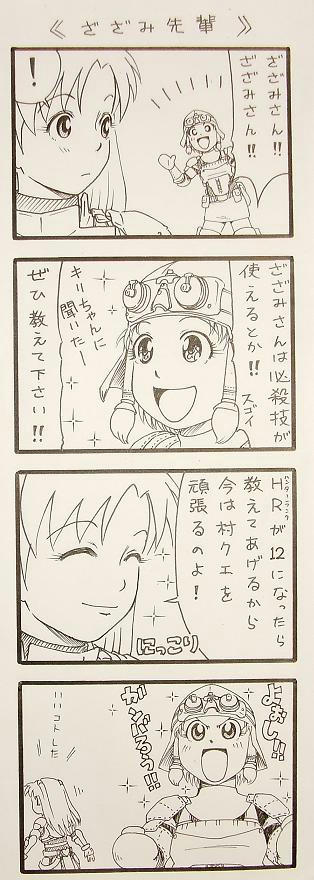 《ざざみ先輩》
ざざみさん!!
ざざみさん!!
!
ざざみさんは必殺技が
使えるとか!!
スゴイ
キリちゃんに
聞いたー
ぜひ教えて下さい!!
HRが12になったら
ハンターランク
教えてあげるから
今は村クエを
頑張るのよ!
にっこり
よぉし!!
ガンバるぅっ!!
いいコトした